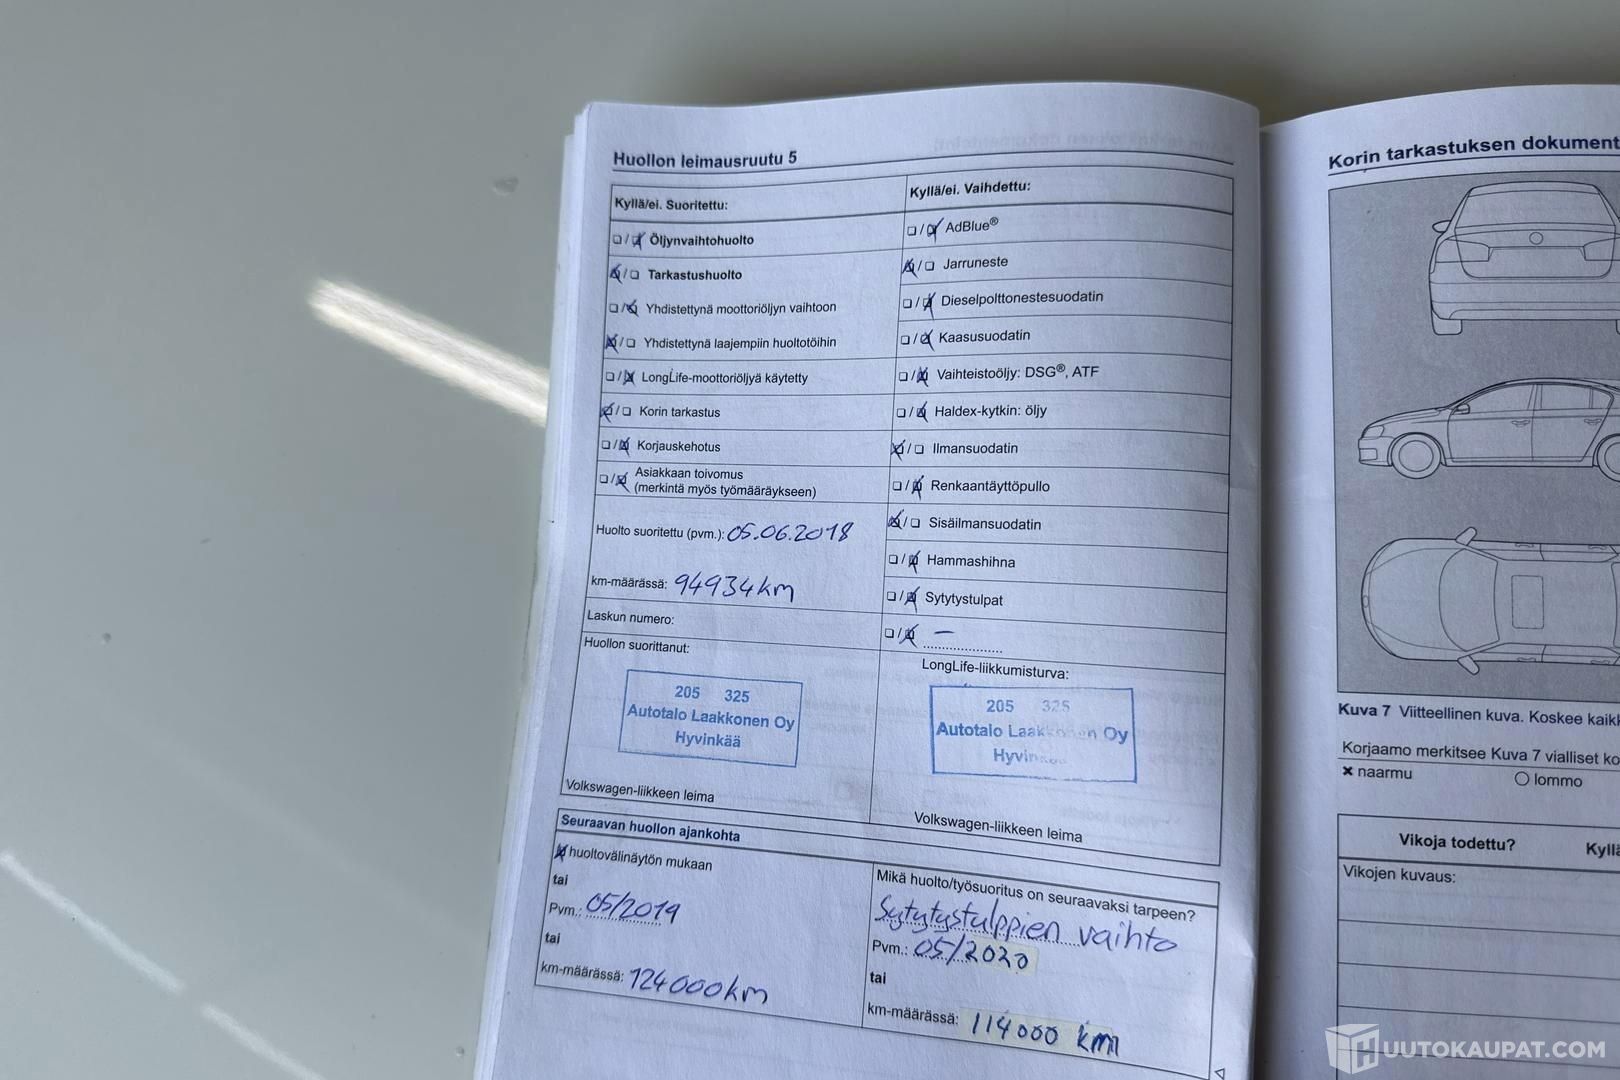 Huollon leimausruutu 5
Kyllä/ei. Suoritettu:
Öljynvaihtohuolto
Tarkastushuolto
Yhdistettynä moottoriöljyn vaihtoon
Yhdistettynä laajempiin huoltotöihin
LongLife-moottoriöljyä käytetty
Korin tarkastus
Korjauskehotus
Asiakkaan toivomus
(merkintä myös työmääräykseen)
Huolto suoritettu (pvm.): 05.06.2018
km-määrässä: 94934km
Laskun numero:
Huollon suorittanut:
205 325
Autotalo Laakkonen Oy
Hyvinkää
Volkswagen-liikkeen leima
Kyllä/ei. Vaihdettu:
AdBlue®
Jarruneste
Dieselpolttonestesuodatin
Kaasusuodatin
Vaihteistoöljy: DSG®, ATF
Haldex-kytkin: öljy
Ilmansuodatin
Renkaantäyttöpullo
Sisäilmansuodatin
Hammashihna
Sytytystulpat
–
LongLife-liikkumisturva:
205 325
Autotalo Laakkonen Oy
Hyvinkää
Volkswagen-liikkeen leima
Seuraavan huollon ajankohta
huoltovälinäytön mukaan
tai
Pvm.: 05/2019
tai
km-määrässä: 124000km
Mikä huolto/työsuoritus on seuraavaksi tarpeen?
Sytytystulppien vaihto
Pvm.: 05/2020
tai
km-määrässä: 114000 km
Korin tarkastuksen dokument
Kuva 7 Viitteellinen kuva. Koskee kaikk
Korjaamo merkitsee Kuva 7 vialliset ko
× naarmu
○ lommo
Vikoja todettu? Kyllä
Vikojen kuvaus:
HUUTOKAUPAT.COM